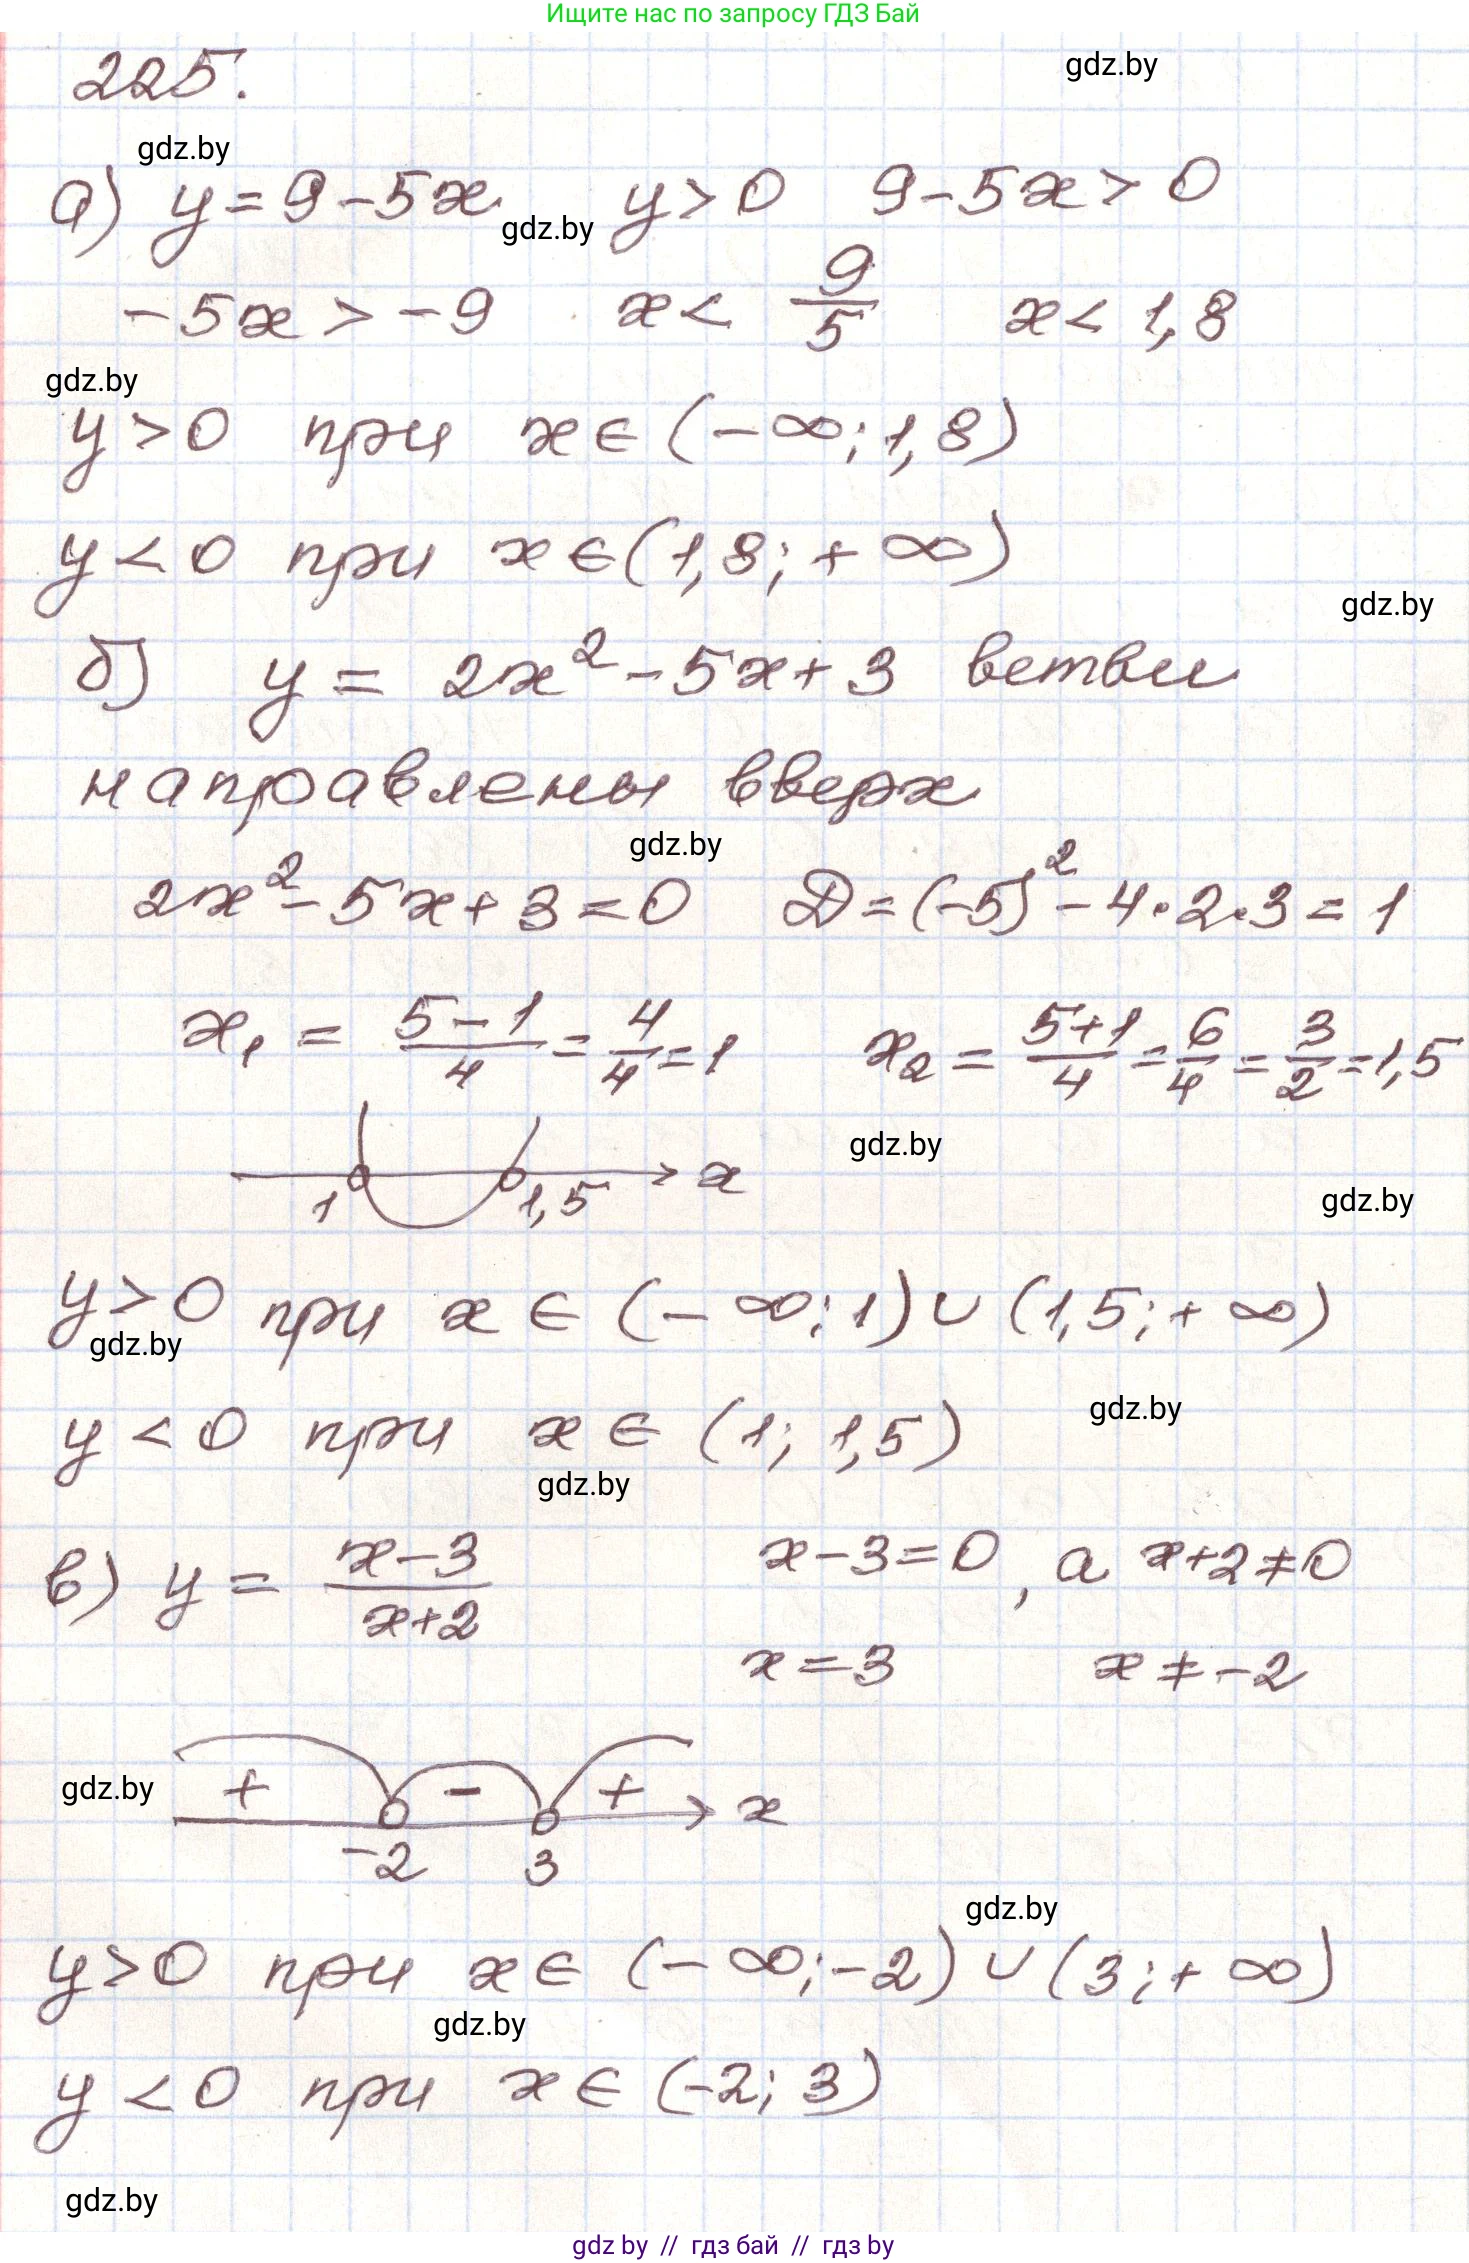 Ищите нас по запросу ГДЗ Бай
225.
gdz.by
gdz.by
а) y = 9 - 5x   y > 0   9 - 5x > 0
gdz.by
-5x > -9   x < 9/5   x < 1,8
gdz.by
y > 0 при x ∈ (-∞; 1,8)
y < 0 при x ∈ (1,8; +∞)
gdz.by
б) y = 2x² - 5x + 3 ветви
направлены вверх
gdz.by
2x² - 5x + 3 = 0   D = (-5)² - 4·2·3 = 1
x₁ = (5-1)/4 = 4/4 = 1   x₂ = (5+1)/4 = 6/4 = 3/2 = 1,5
gdz.by
1   1,5   x
gdz.by
y > 0 при x ∈ (-∞; 1) ∪ (1,5; +∞)
gdz.by
gdz.by
y < 0 при x ∈ (1; 1,5)
gdz.by
в) y = (x-3)/(x+2)   x - 3 = 0, а x + 2 ≠ 0
x = 3   x ≠ -2
gdz.by
+ - + x
-2   3
gdz.by
y > 0 при x ∈ (-∞; -2) ∪ (3; +∞)
gdz.by
y < 0 при x ∈ (-2; 3)
gdz.by
gdz by // гдз бай // гдз by